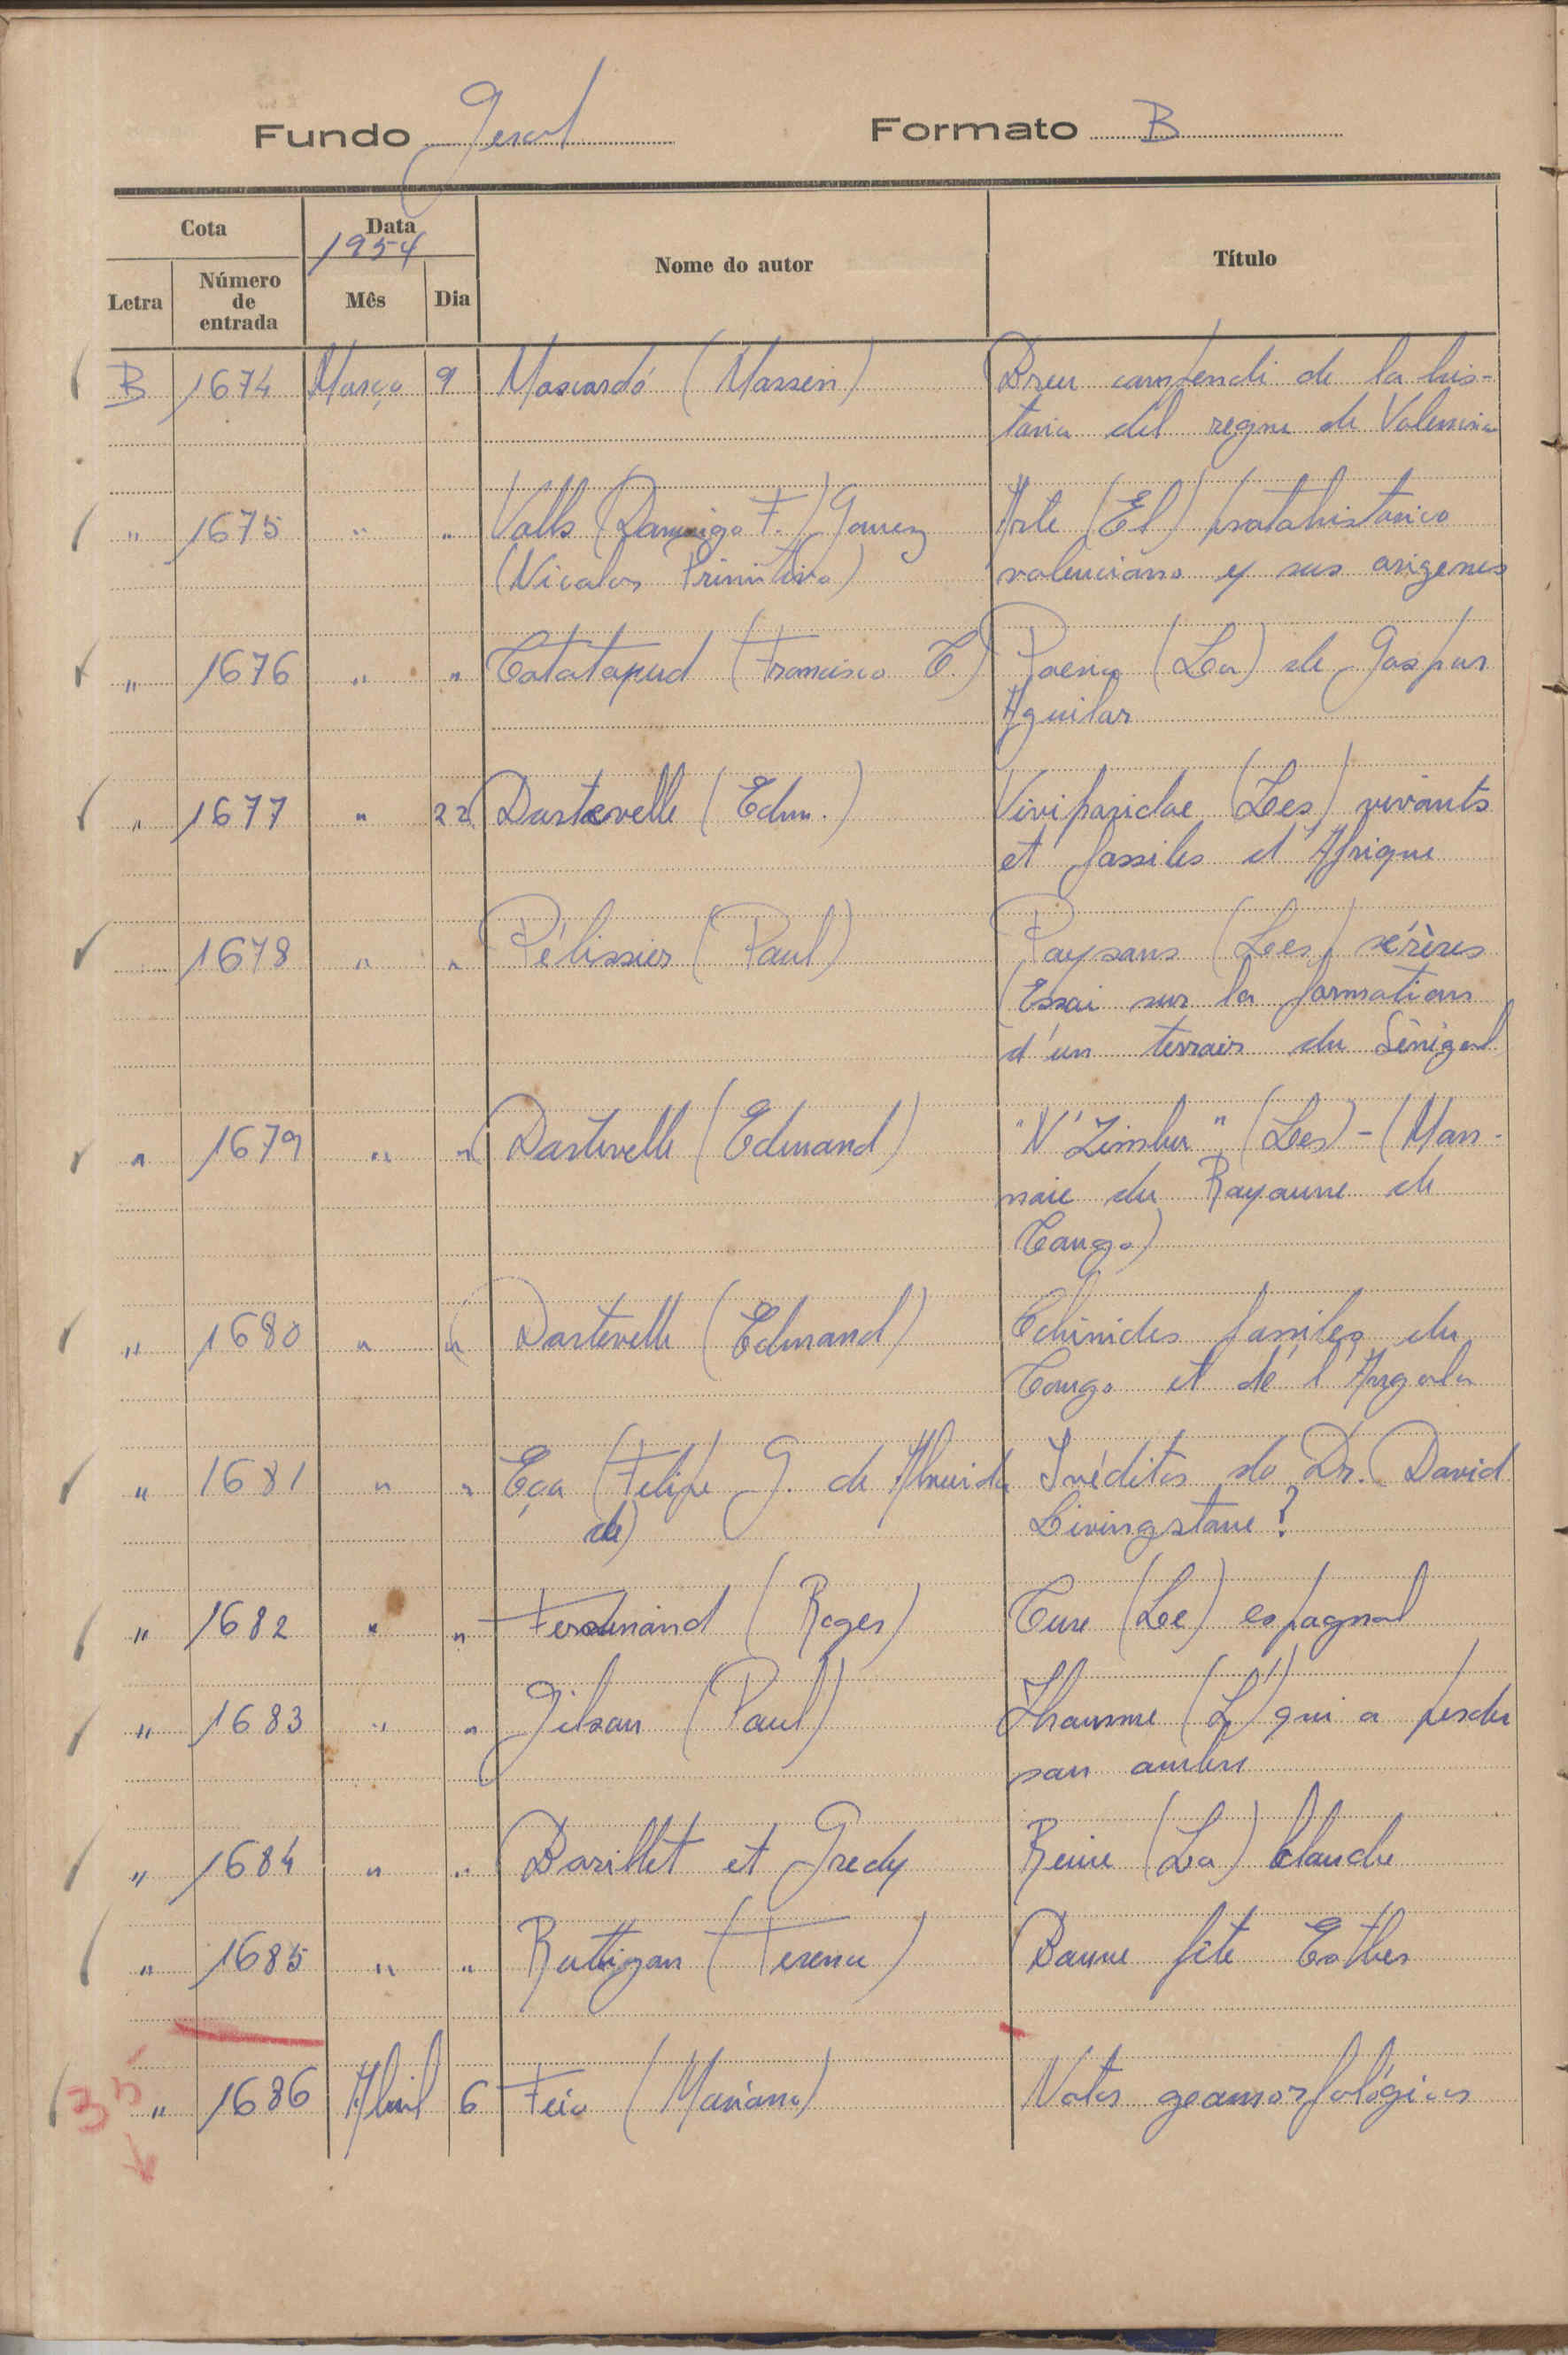 Fundo Geral Formato B
Cota Data Nome do autor Título
1954
Letra Número de entrada Mês Dia
B 1674 Março 9 Moscardó (Mossen) Breu compendi de la his-
toria del regne de Valencia
" 1675 " " Valls (Domingo F.) Gomez Arte (El) protohistorico
(Nicolas Primitivo) valenciano y sus origenes
" 1676 " " (Francisco C.) Poesia (La) de Gaspar
Aguilar
" 1677 " 22 Dartevelle (Edm.) Viviparidae (Les) vivants
et fossiles d'Afrique
1678 " " Pélissier (Paul) Paysans (Les) sérères
(Essai sur la formation
d'un terroir du Sénégal
" 1679 " " Dartevelle (Edmond) "N'Zimbu" (Les) - (Mon-
naie du Royaume de
Congo)
" 1680 " " Dartevelle (Edmond) Echinides fossiles du
Congo et de l'Angola
" 1681 " " Eça (Felipe G. de Almeida Inéditos do Dr. David
de) Livingstone?
" 1682 " " Ferdinand (Roger) (Le) espagnol
" 1683 " " Gilson (Paul) Jhomme (L') qui a perdu
son ombre
" 1684 " " Barillet et Gredy Reine (La) blanche
" 1685 " " Rattigan (Terence) Bonne fête Esther
35
" 1686 Abril 6 Feio (Mariano) Notas geomorfológicas